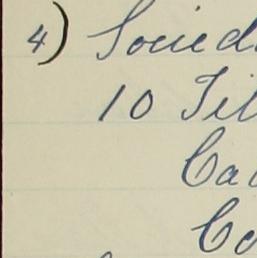 4) Socied
10 Til
Ca
Co